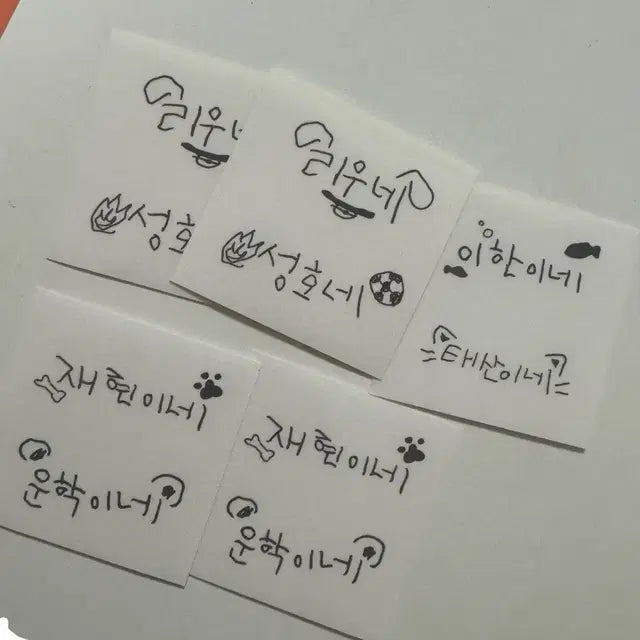 리우네
성호
리우네
성호네
이한이네
태산이네
재현이네
운학이네
재현이네
운학이네